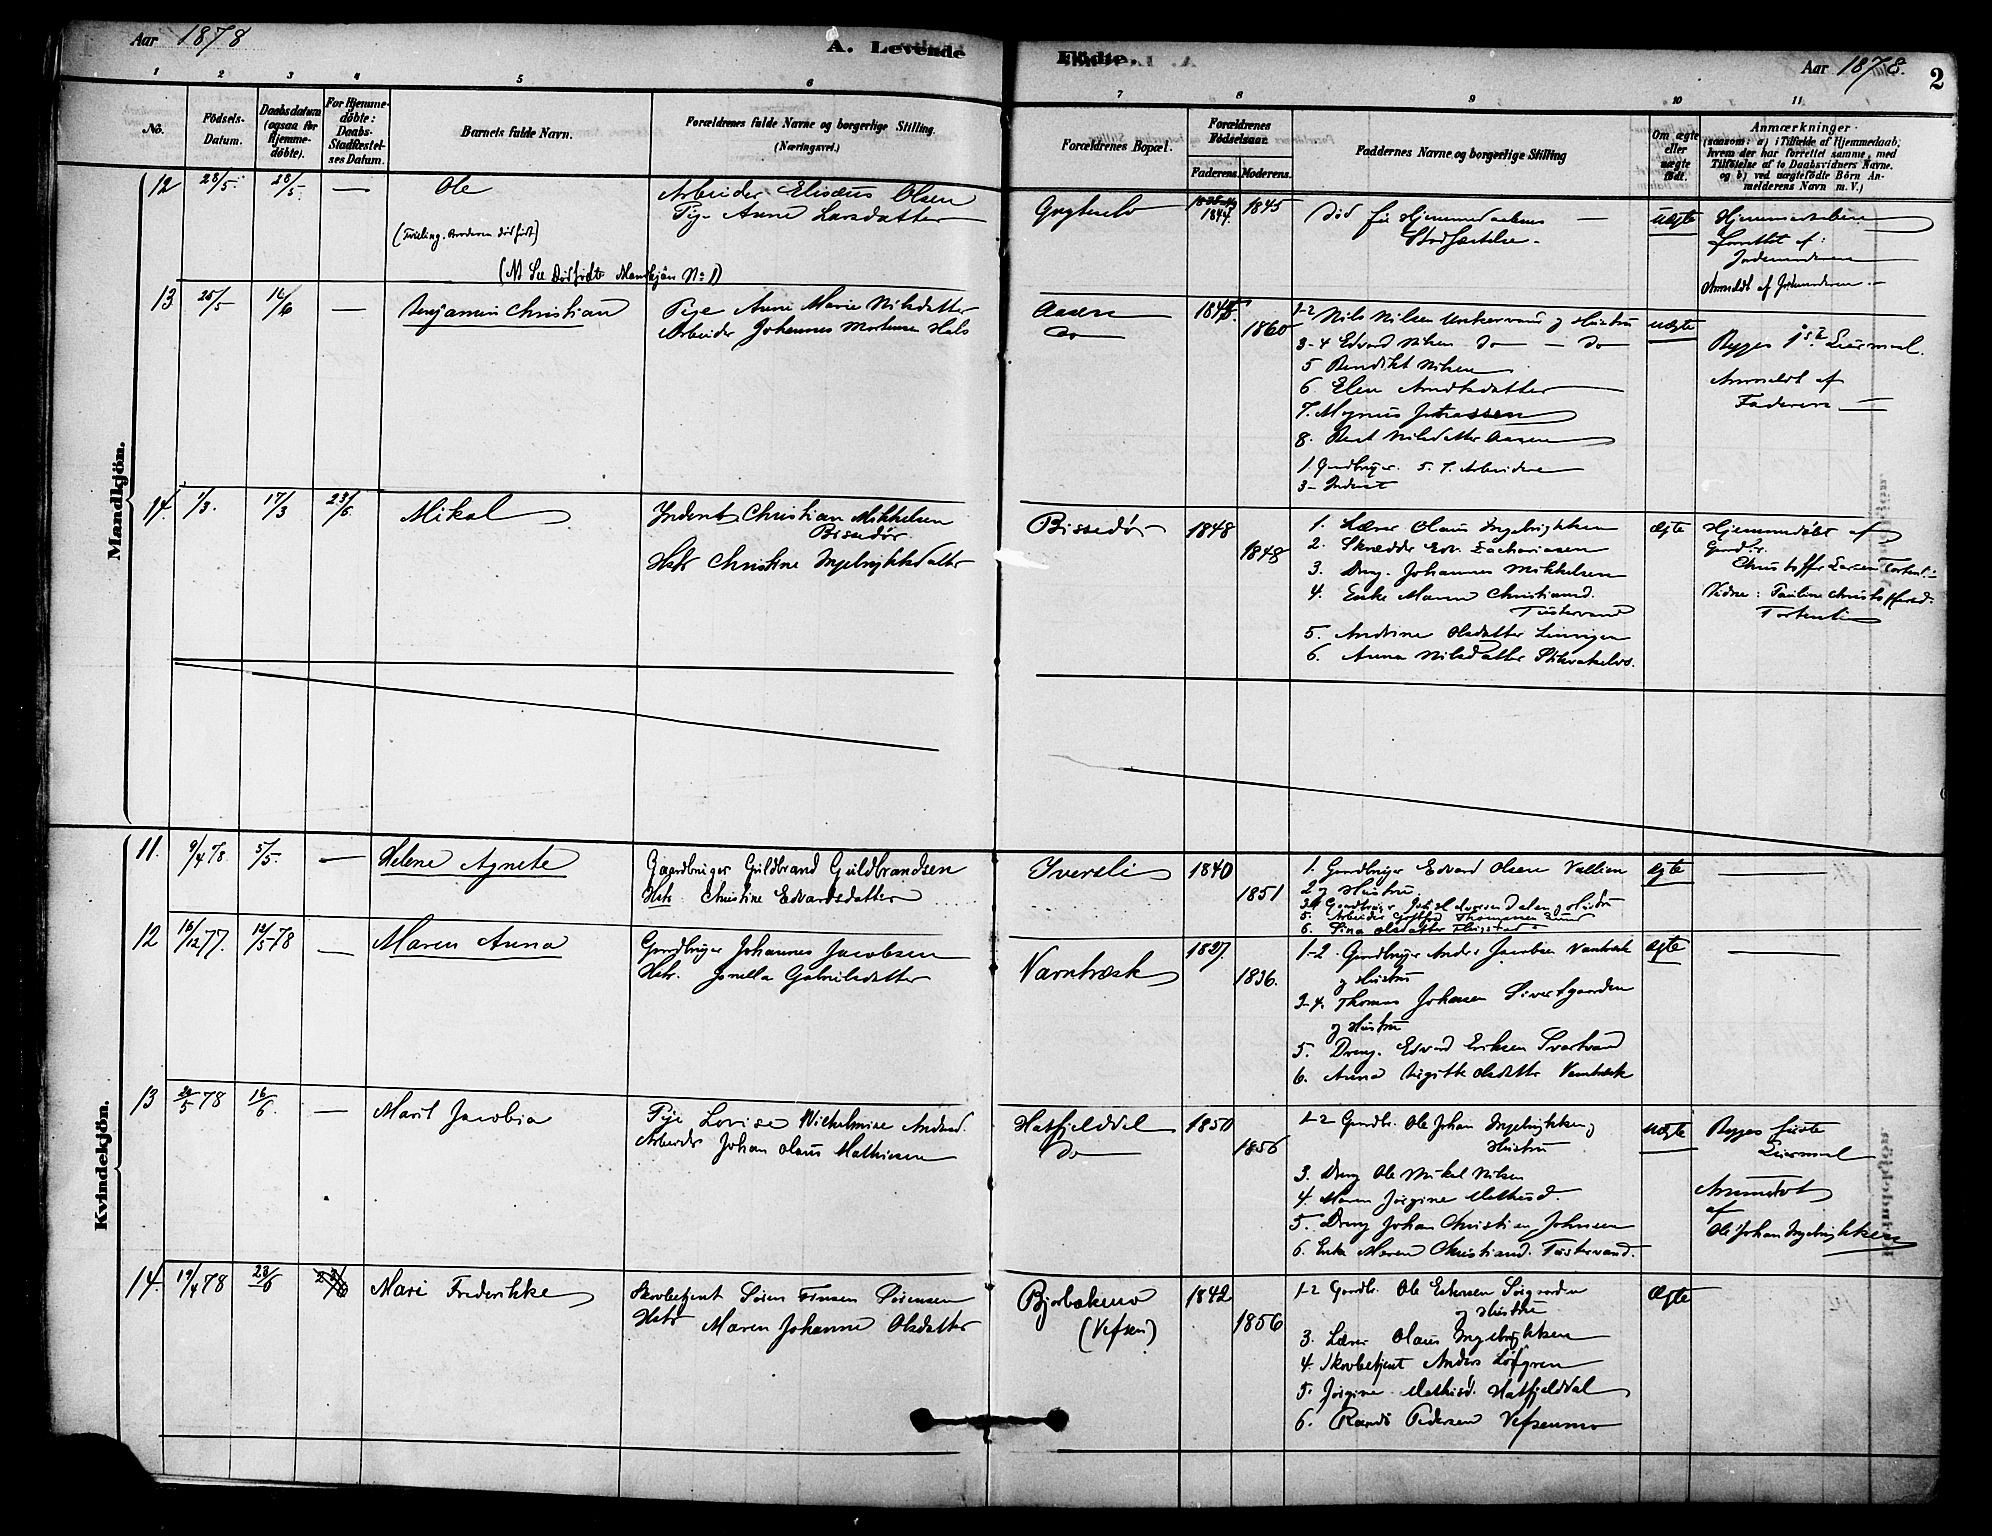 Aar 1878
A. Levende
Födte.
Aar 1878.
2
1 2 3 4 5 6 7 8 9 10 11
No.
Födsels-
Datum.
Daabsdatum
(ogsaa for
Hjemme-
döbte).
For Hjemme-
döbte:
Daabs-
Stadfæstel-
ses Datum.
Barnets fulde Navn.
Forældrenes fulde Navne og borgerlige Stilling.
(Næringsvei.)
Forældrenes Bopæl.
Forældrenes
Födselsaar.
Faderens. Moderens.
Faddernes Navne og borgerlige Stilling
Om ægte
eller
uægte
födt.
Anmærkninger
(saasom: a) i Tilfælde af Hjemmedaab,
hvem der har forrettet samme, med
Tilföielse af to Daabsvidners Navne.
og b) ved uægtefödte Börn An-
melderens Navn m. V.)
Mandkjön.
12 28/5. 28/5. — Ole
(Tvilling. Broderen dødfødt)
(NB See Dødfødte Mandkjøn No 1)
Arbeider Elisæus Olsen
Pige Anne Larsdatter
1844. 1845
Død før Hjemmedaabens
Stadfæstelse.
Uægte
Hjemmedaaben
forrettet af
Jordemoderen
Anmeldt af Jordemoderen
13 25/5 16/6 — Benjamin Christian
Pige Anne Marie Nilsdatter
Arbeider Johannes Mortensen Hals
Aasen
Do
1860
1-2 Nils Nilsen Unkervand og Hustru
3-4 Edvard Nilsen Do — Do
5 Bendikt Nilsen
6 Elen Arntsdatter
7. Magnus Johansen
8. Berit Nilsdatter Aasen
1. Gaardbruger. 5. 7. Arbeidere
3- Inderst
Uægte
Begges 1ste Leiermaal.
Anmeldt af
Faderen
14. 1/3. 17/3 23/6 Mikal
Inderst Christian Mikkelsen
Bissedør.
Hstr Christine Ingebrigtsdatter
Bissedør 1848 1848
1. Lærer Olaus Ingebrigtsen
2. Skrædder Edv. Zachariasen
3. Dreng. Johannes Mikkelsen
4. Enke Maren Christiansd.
Tustervand
5. Andrine Olsdatter
6. Anna Nilsdatter
ægte
Hjemmedøbt af
Gaardbr.
Christoffer Larsen Tortenli
Vidne: Pauline Christoffersd.
Tortenli
Kvindekjön.
11. 9/4 78. 5/5. — Helene Agnete
Gaardbruger Guldbrand Guldbrandsen
Hstr. Christine Edvardsdatter
Iversli 1840 1851
1. Gaardbruger Edvard Olsen
2 og Hustru
6. Sina Olsdatter
ægte —
12 16/12 77. 12/5 78 — Maren Anna
Gardbruger Johannes Jacobsen
Hstr. Jonella Gabrielsdatter
Varntræsk 1827. 1836.
1-2 Gardbruger Anders Jacobsen Varntræsk
og Hustru
3-4. Thomas Johansen Sivertgaarden
og Hustru
5. Dreng. Edvard Eriksen Svartvand
6. Anna Birgitte Olsdatter Varntræsk
ægte —
13 5 78 16/6. — Marit Jacobia
Pige Lovise Wilhelmine Andersd.
Arbeider Johan Olaus Mathiesen
Hatfjelddal
Do
1850 1856
1-2 Gardbr. Ole Johan Ingebrigtsen og
Hustru
3. Dreng Ole Mikal Nilsen
4. Maren Jørgine Mathisd.
5. Dreng Johan Christian Johnsen
6. Enke Maren Christiansd. Tustervand.
uægte
Begges første
Leiermaal
Anmeldt
af
Ole Johan Ingebrigtsen
14. 19/4 78 23/6 Mari Frederikke
Skovbetjent Søren Finsen Sørensen
Hstr Maren Johanne Olsdatter
Bjorbækmo
(Vefsen)
1842 1856
1-2 Gardbr. Ole
og Hustru
3. Lærer Olaus Ingebrigtsen
4. Skovbetjent Anders Løfgren
5. Jørgine Mathisd. Hatfjelddal
6. Randi Pedersen Vefsenmo
Ægte